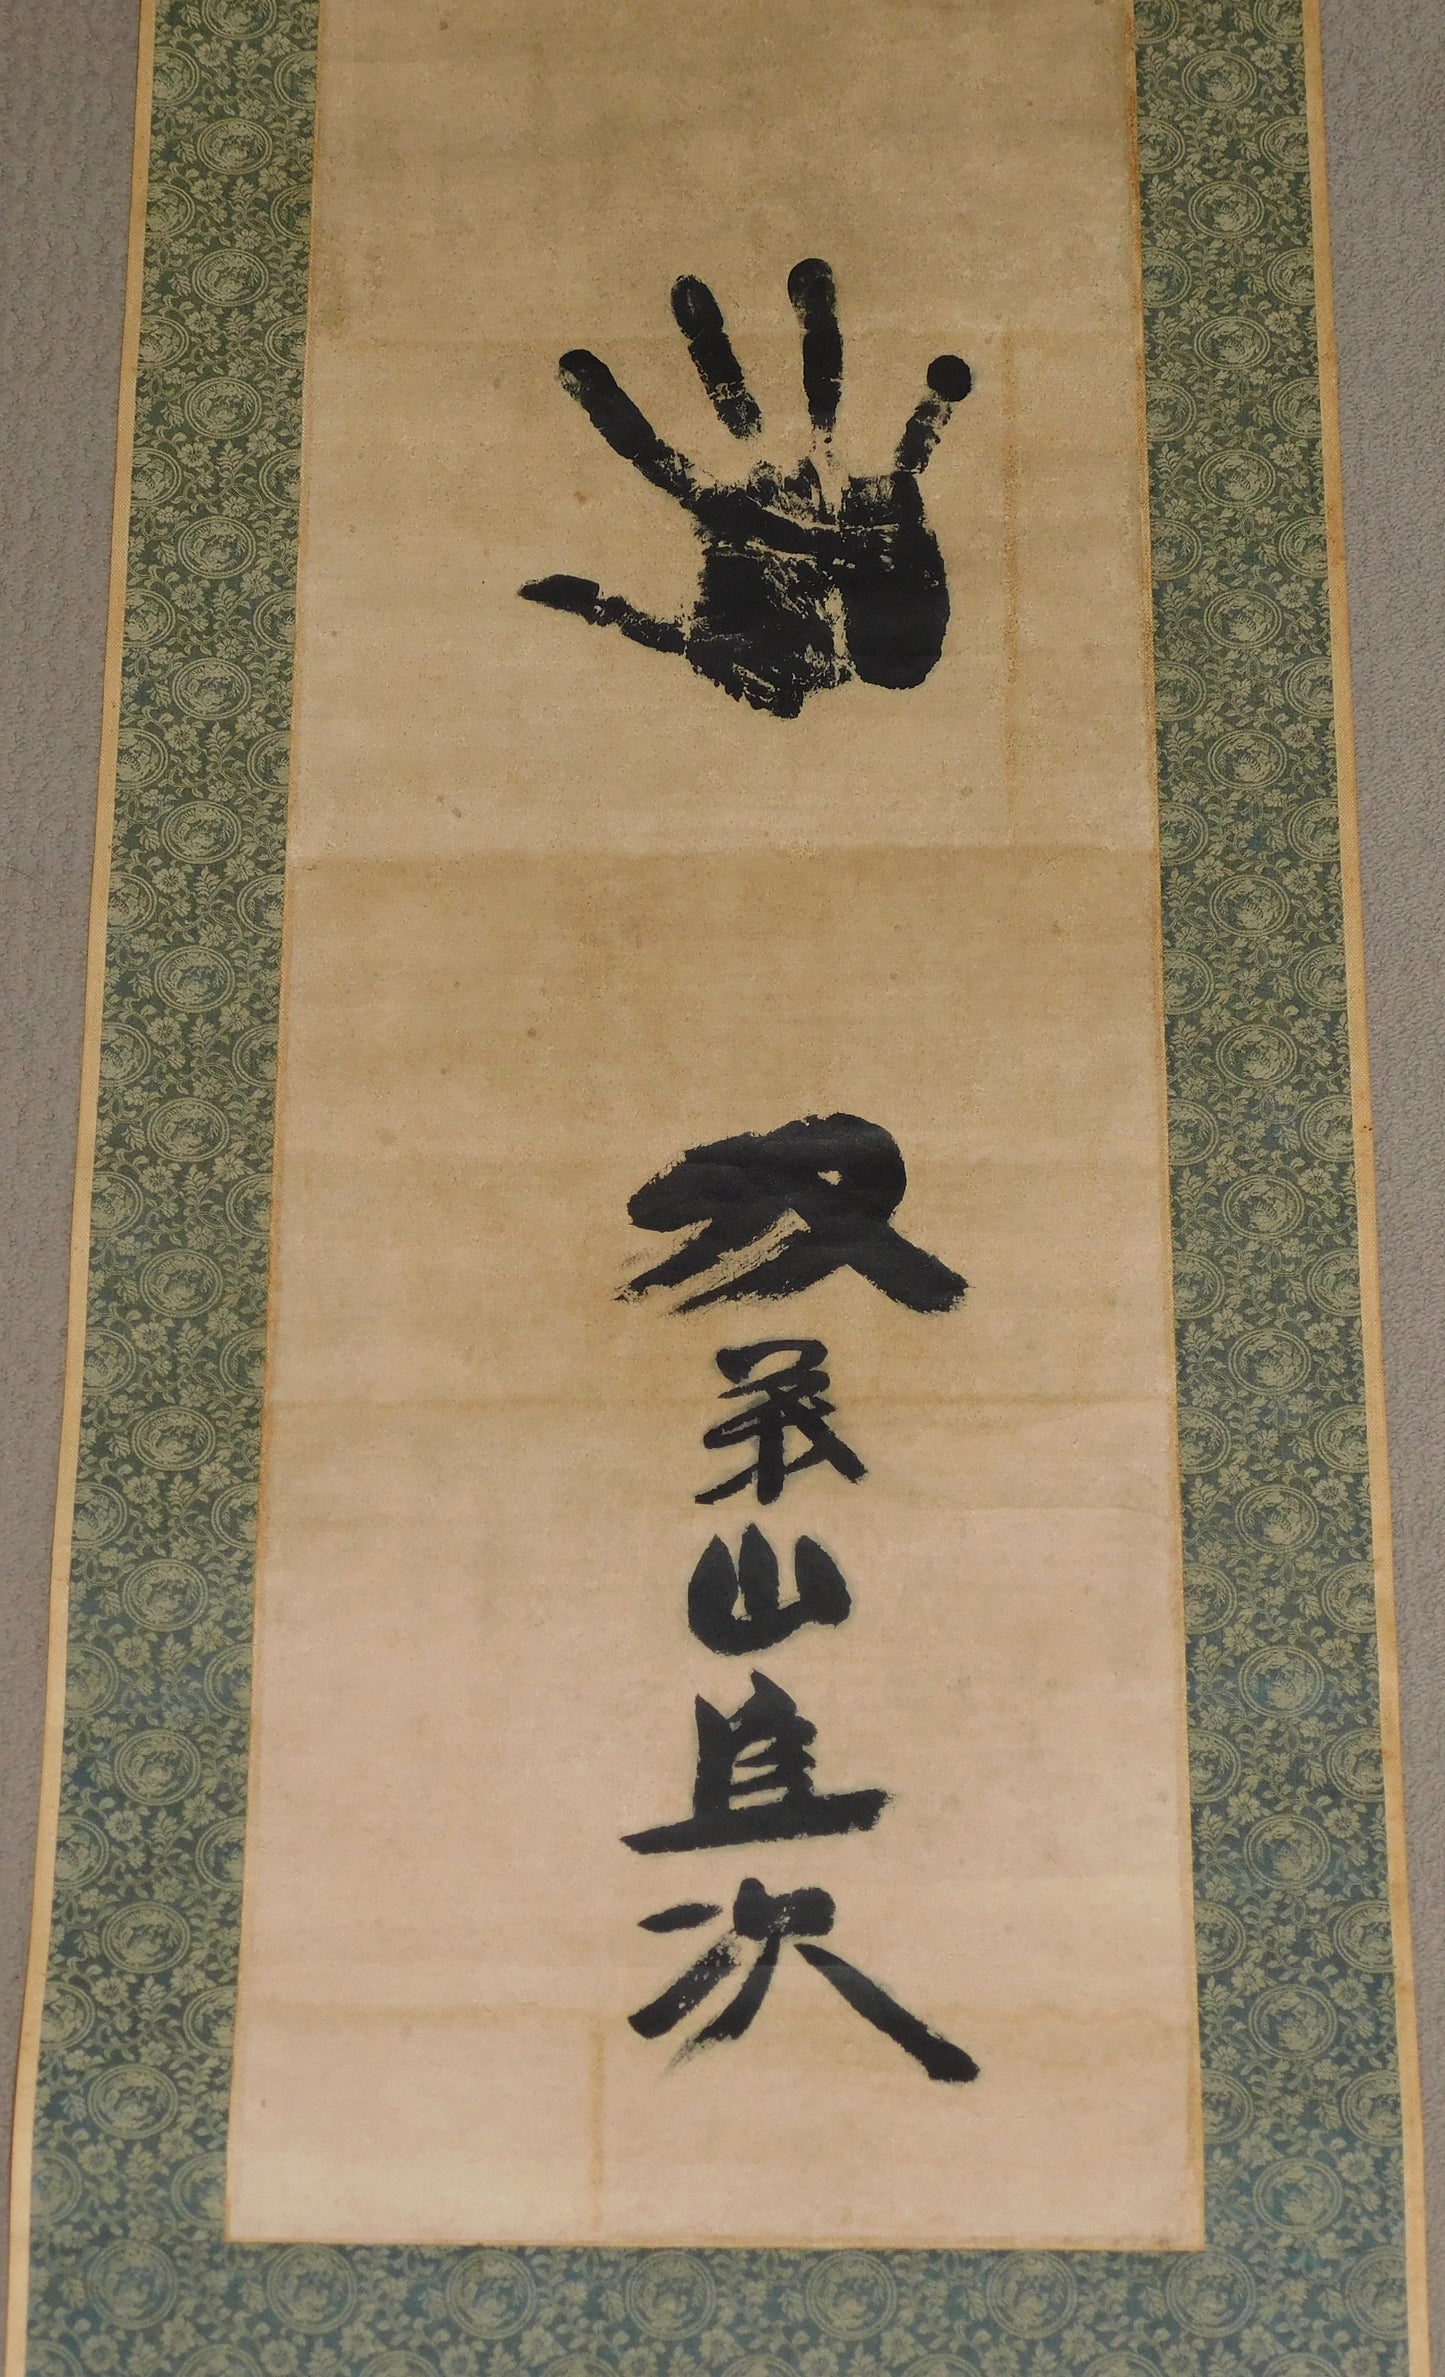 双葉山定次